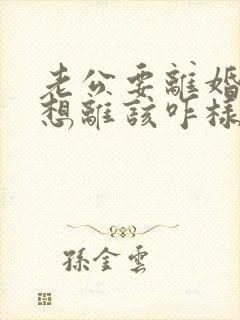 老公要離婚
想離該咋樣
孫金雲